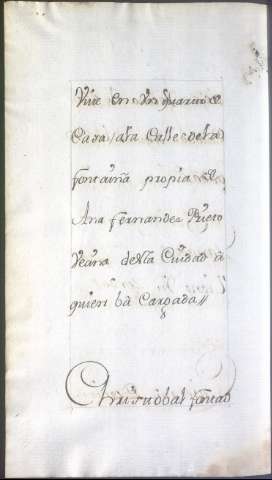 Vive en Un quarto de
Casa â la Calle de la
fontaina propia de
Ana fernandez Prieto
Vecina de esta Ciudad a
quien bà Cargada //
Christobal